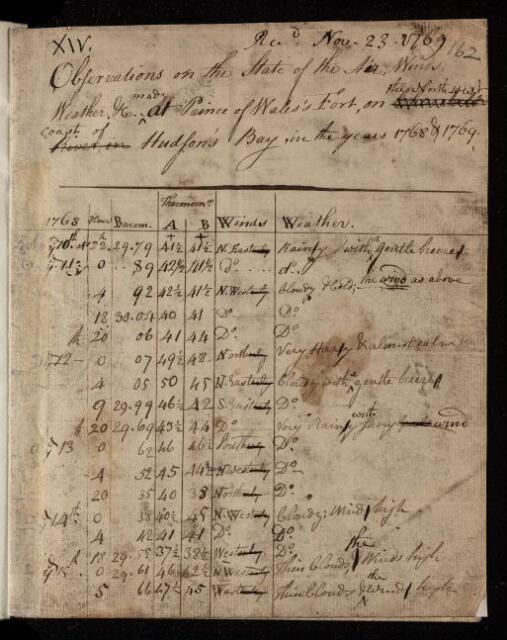 XIV. Rec.d Nov. 23. 1769 162
Observations on the State of the Air, Winds,
Weather, &c. made at Prince of Wales's Fort, on the North west
coast of Hudson's Bay, in the years 1768 & 1769.
Thermom.rs
1768 Hour Barom. A B Winds Weather.
10th 22 29.79 41½ 41½ N. Easterly Rainy with a gentle breeze
11 0 .. 89 42½ 41½ Do. do.
4 92 42½ 41½ N. Westerly Cloudy & Cold; the wind as above
18 30.04 40 41 Do. Do.
20 06 41 44 Do. Do.
12 0 07 49½ 48 Northerly Very Hazy & almost calm
4 05 50 45 N. Easterly Cloudy with a gentle breeze
9 29.99 46½ 42 S. Easterly Do.
20 29.69 43½ 44 Do. Very Rainy with wind
13 0 62 46 46½ Southerly Do.
4 52 45 44½ N. Westerly Do.
20 35 40 38 Northerly Do.
14th 0 38 40½ 45 N. Westerly Cloudy; Wind high
4 42 41 41 Do. Do.
18 29.55 37½ 38½ Westerly Do.
0 29.61 46 42½ N. Westerly Thin Clouds, the Winds high
5 66 47½ 45 Westerly Thin Clouds & the Wind high